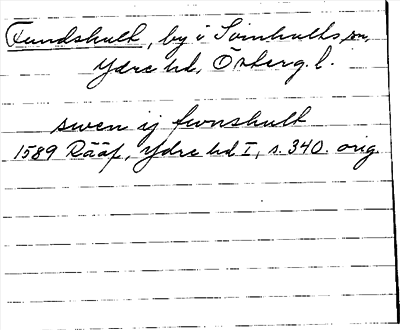 Fundshult, by i Svinhults sn,
Ydre hd, Österg. l.
swen ij funshult
1589 Rääf, Ydre hd I, s. 340. orig.